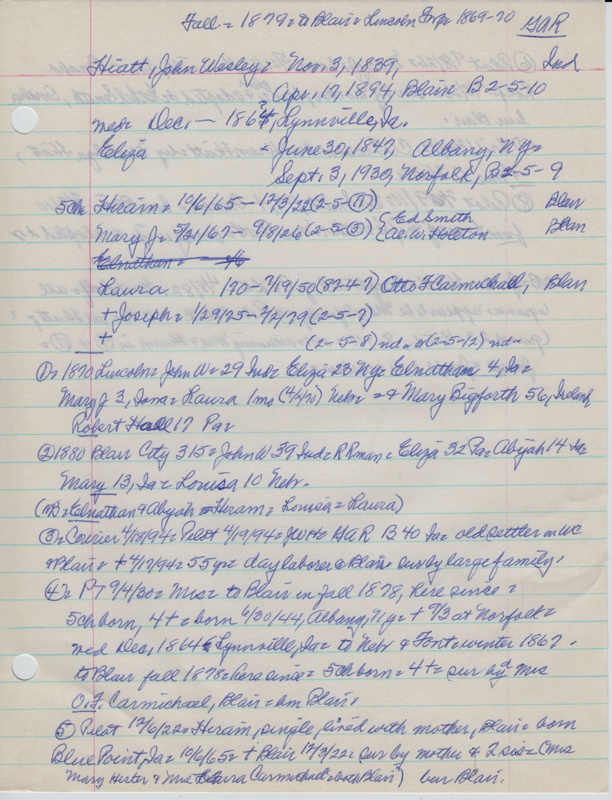 Fall = 1879 = to Blair = Lincoln Twp = 1869-70 GAR
Hiatt, John Wesley = Nov. 3, 1839, Ind
Apr. 17, 1894, Blair B 2-5-10
med = Dec. — 1864, Lynnville, Ia.
Eliza = June 30, 1847, Albany, Ny =
Sept. 3, 1930, Norfolk, B2-5-9
5ch Hiram = 10/6/65 — 12/3/22 (2-5-11) Blair
Mary J = 5/21/67 - 9/8/26 (2-5-3) { Ed Smith Blair
{ A.W. Holeton
Elnathan =
Laura 170 - 7/19/50 (87-4-7) Otto F Carmichael, Blair
+ Joseph = 1/29/75 - 2/2/79 (2-5-7)
+ (2-5-8) nd - or (2-5-12) nd -
① = 1870 Lincoln = John W = 29 Ind = Eliza 23 Ny = Elnathan 4, Ia =
Mary J 3, Iowa = Laura 1mo (4/70) Nebr = + Mary Bigforth 56, Ireland,
Robert Hall 17 Pa =
② 1880 Blair City 315 = John W 39 Ind = RRman = Eliza 32 Pa = Abijah 14 Ia =
Mary 13, Ia = Louisa 10 Nebr.
(NB = Elnathan & Abyah = Hiram = Louisa = Laura)
③ = Courier 4/18/94 = Pilot 4/19/94 = GAR B 40 Ia = old settler in WC
+ Blair = + 4/17/94 = 55 yr = day laborer @ Blair = sur by large family.
④ = PT 9/4/30 = Mrs = to Blair in fall 1878, here since =
5ch born, 4+ = born 6/30/44, Albany, Ny = + 9/3 at Norfolk =
med Dec, 1864 = Lynnville, Ia = to Nebr & Font = winter 1867.
to Blair fall 1878 = here since = 5ch born = 4+ = sur by d Mrs
O.F. Carmichael, Blair = bm Blair.
⑤ Pilot 12/6/22 = Hiram, single, lived with mother, Blair = born
Blue Point, Ia = 10/6/65 = + Blair 12/3/22 = sur by mother & 2 sis = (Mrs
Mary Hester & Mrs Laura Carmichael = both Blair) bur Blair.